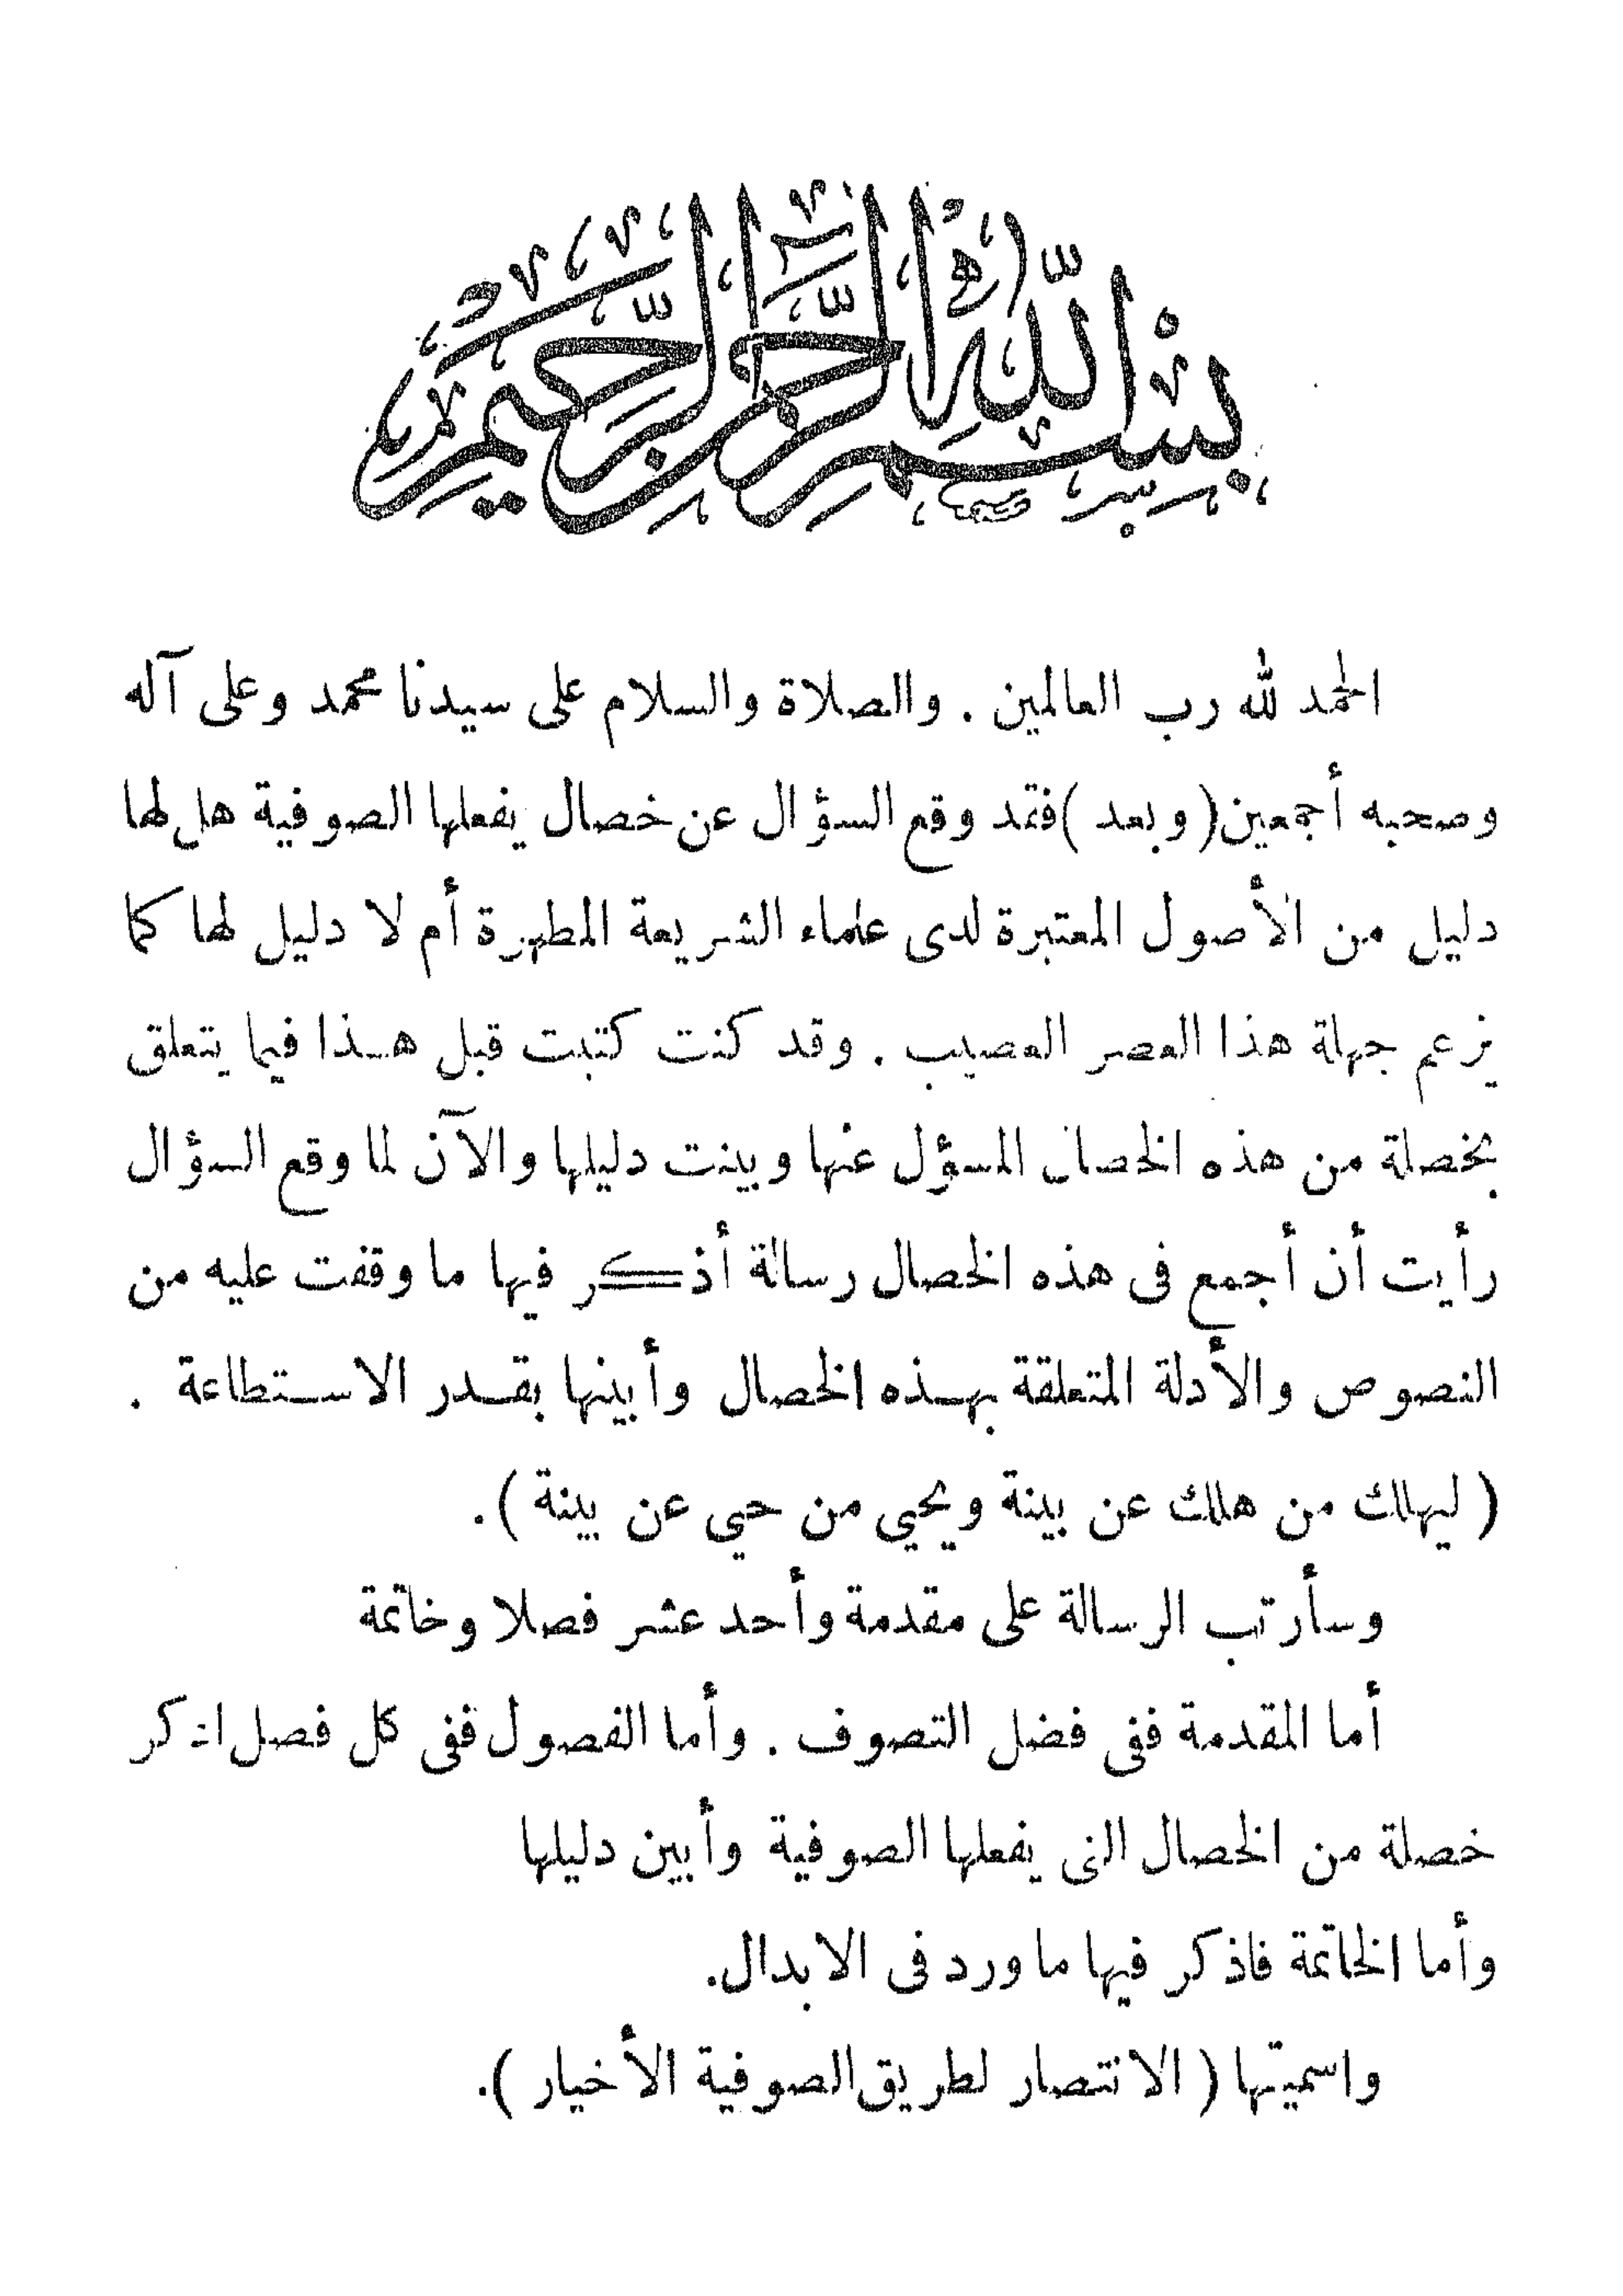 بسم الله الرحمن الرحيم
الحمد لله رب العالمين . والصلاة والسلام على سيدنا محمد وعلى آله
وصحبه أجمعين ( وبعد ) فقد وقع السؤال عن خصال يفعلها الصوفية هل لها
دليل من الأصول المعتبرة لدى علماء الشريعة المطهرة أم لا دليل لها كما
يزعم جهلة هذا العصر العصيب . وقد كنت كتبت قبل هذا فيما يتعلق
بخصلة من هذه الخصال المسؤل عنها وبينت دليلها والآن لما وقع السؤال
رأيت أن أجمع فى هذه الخصال رسالة أذكر فيها ما وقفت عليه من
النصوص والأدلة المتعلقة بهذه الخصال وأبينها بقدر الاستطاعة .
( ليهلك من هلك عن بينة ويحيي من حيي عن بينة ) .
وسأرتب الرسالة على مقدمة وأحد عشر فصلا وخاتمة
أما المقدمة ففى فضل التصوف . وأما الفصول ففى كل فصل اذكر
خصلة من الخصال التى يفعلها الصوفية وأبين دليلها
وأما الخاتمة فاذكر فيها ما ورد فى الابدال.
واسميتها ( الانتصار لطريق الصوفية الأخيار ) .